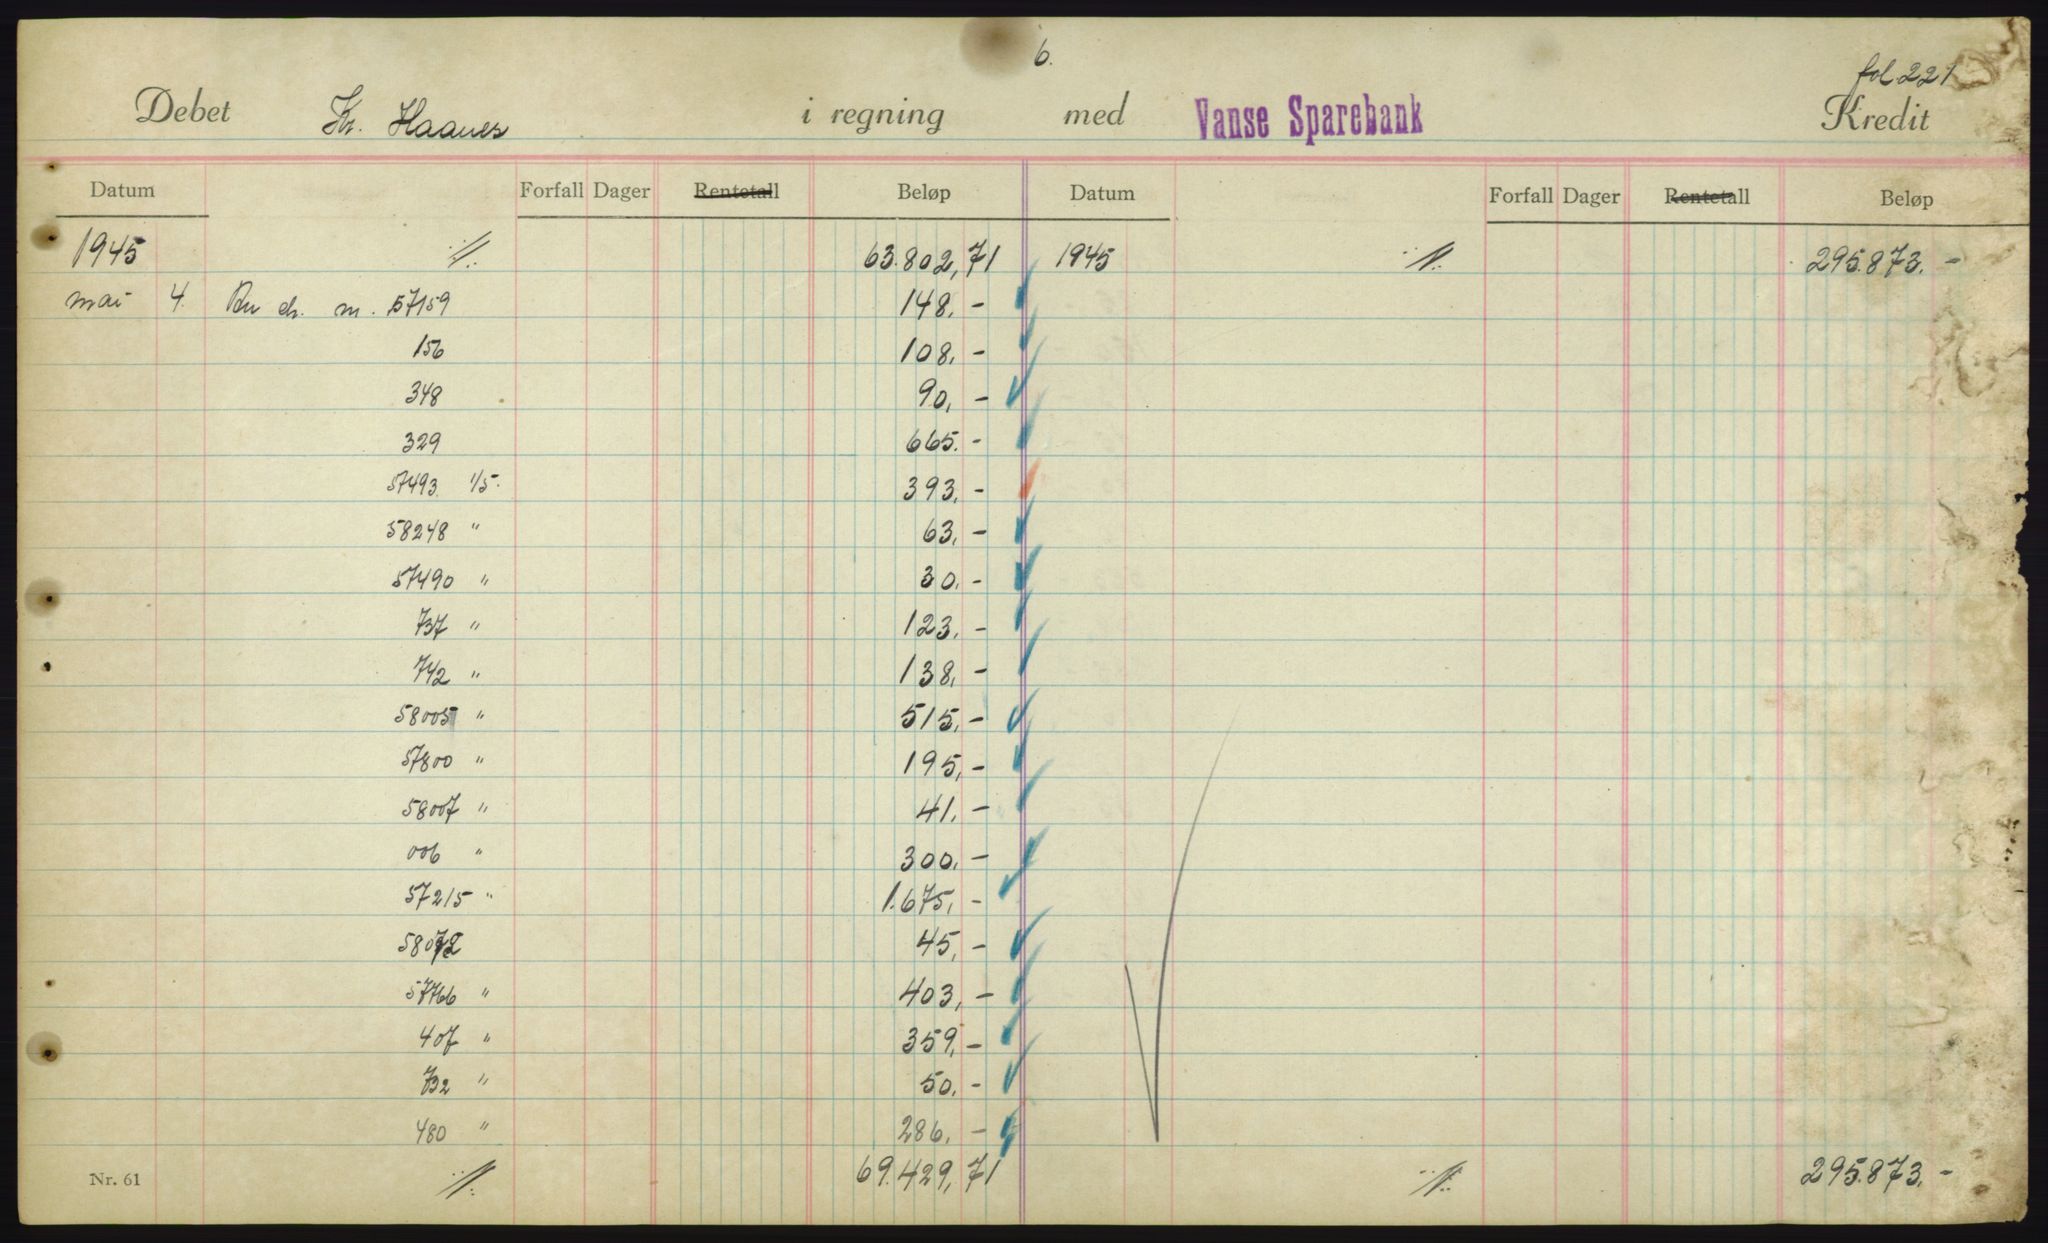 6.
fol 221
Debet Kr. Haanes i regning med Vanse Sparebank Kredit
Datum Forfall Dager Rentetall Beløp Datum Forfall Dager Rentetall Beløp
1945 ·/. 63.802,71 1945 ·/. 295.873.-
mai 4. ch. 57159 148,-
156 108,-
348 90,-
329 665.-
57493 1/5. 393,-
58248 " 63,-
57490 " 30,-
737 " 123,-
742 " 138,-
58005 " 515,-
57800 " 195,-
58007 " 41,-
006 " 300,-
57215 " 1.675,-
58072 45,-
57766 " 403,-
407 " 359,-
732 " 50,-
480 " 286,-
Nr. 61 ·/. 69.429,71 ·/. 295.873,-